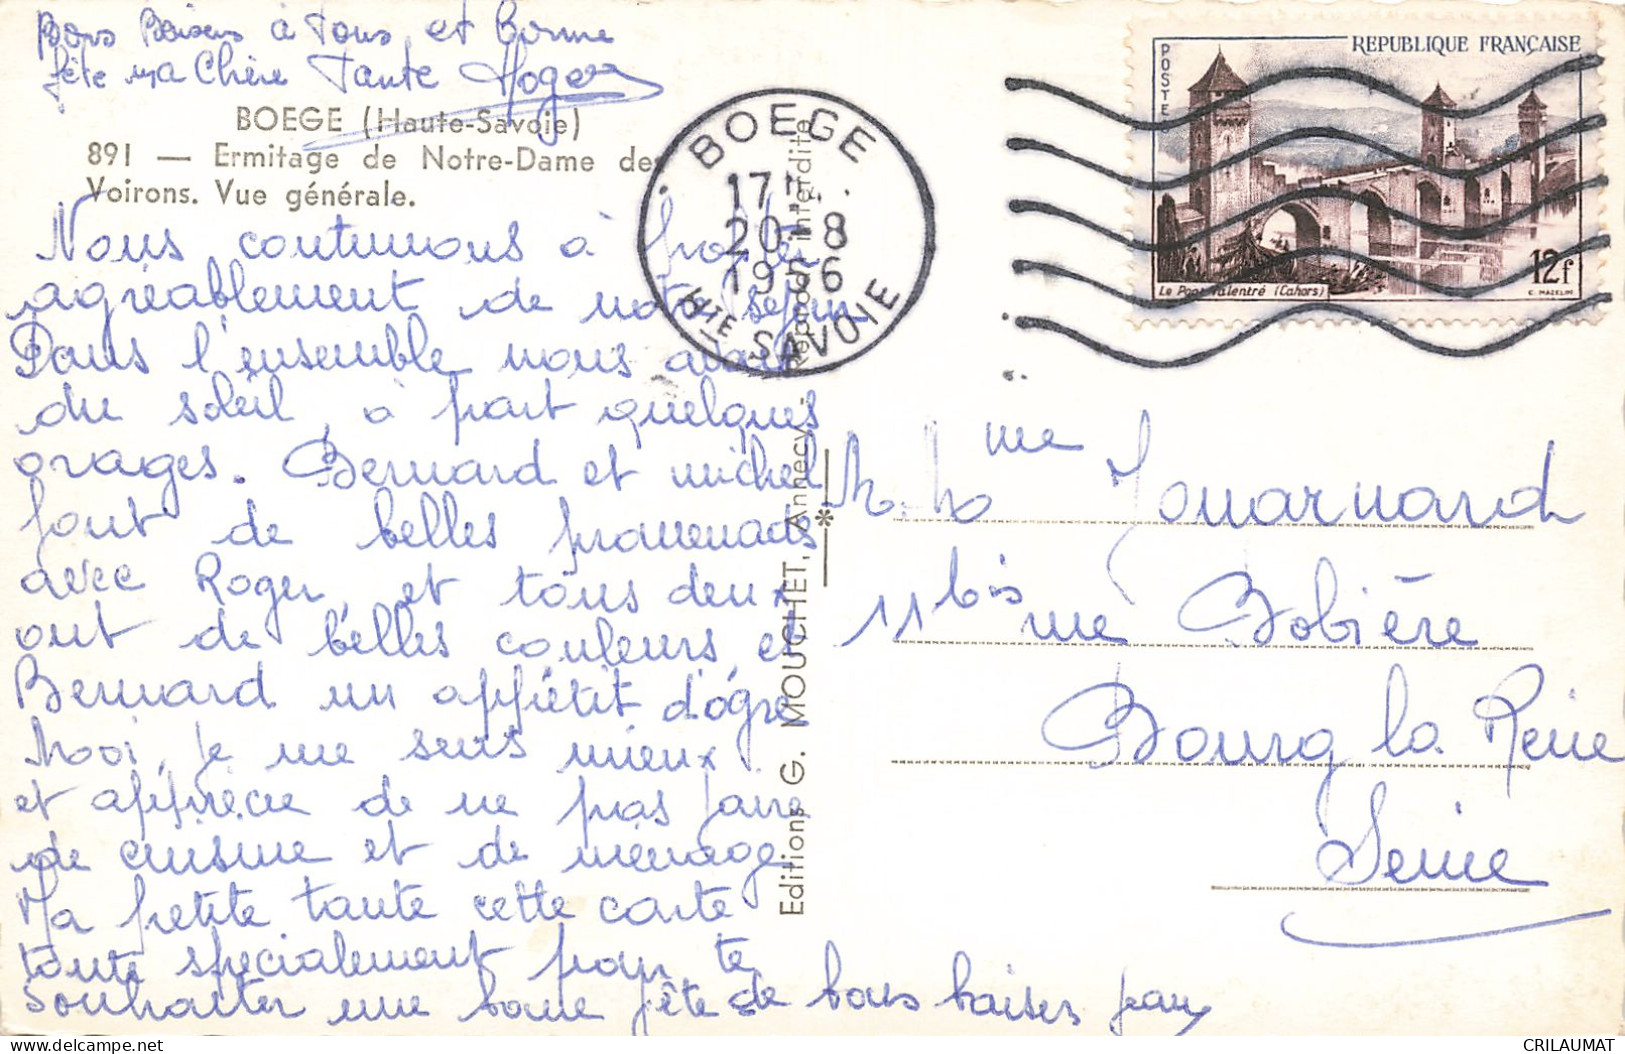 Bons Baisers à Tous et bonne
fête ma Chère Tante Roger
BOEGE (Haute-Savoie)
891 — Ermitage de Notre-Dame des
Voirons. Vue générale.
Nous continuons à profiter
agréablement de notre séjour
Dans l'ensemble nous avons
du soleil, à part quelques
orages. Bernard et michel
font de belles promenades
avec Roger, et tous deux
ont de belles couleurs, et
Bernard un appétit d'ogre
Moi, je me sens mieux
et apprécie de ne pas faire
de cuisine et de ménage
Ma petite tante cette carte
toute specialement pour te
souhaiter une bonne fête de bons baisers
BOEGE
17H
20-8
1956
HTE SAVOIE
REPUBLIQUE FRANÇAISE
POSTES
Le Pont Valentré (Cahors)
12f
C. MAZELIN
Editions G. MOUCHET, Annecy - Reproduction interdite
*
M. Mme Jouarnard
11 bis rue Bobière
Bourg la Reine
Seine
CRILAUMAT